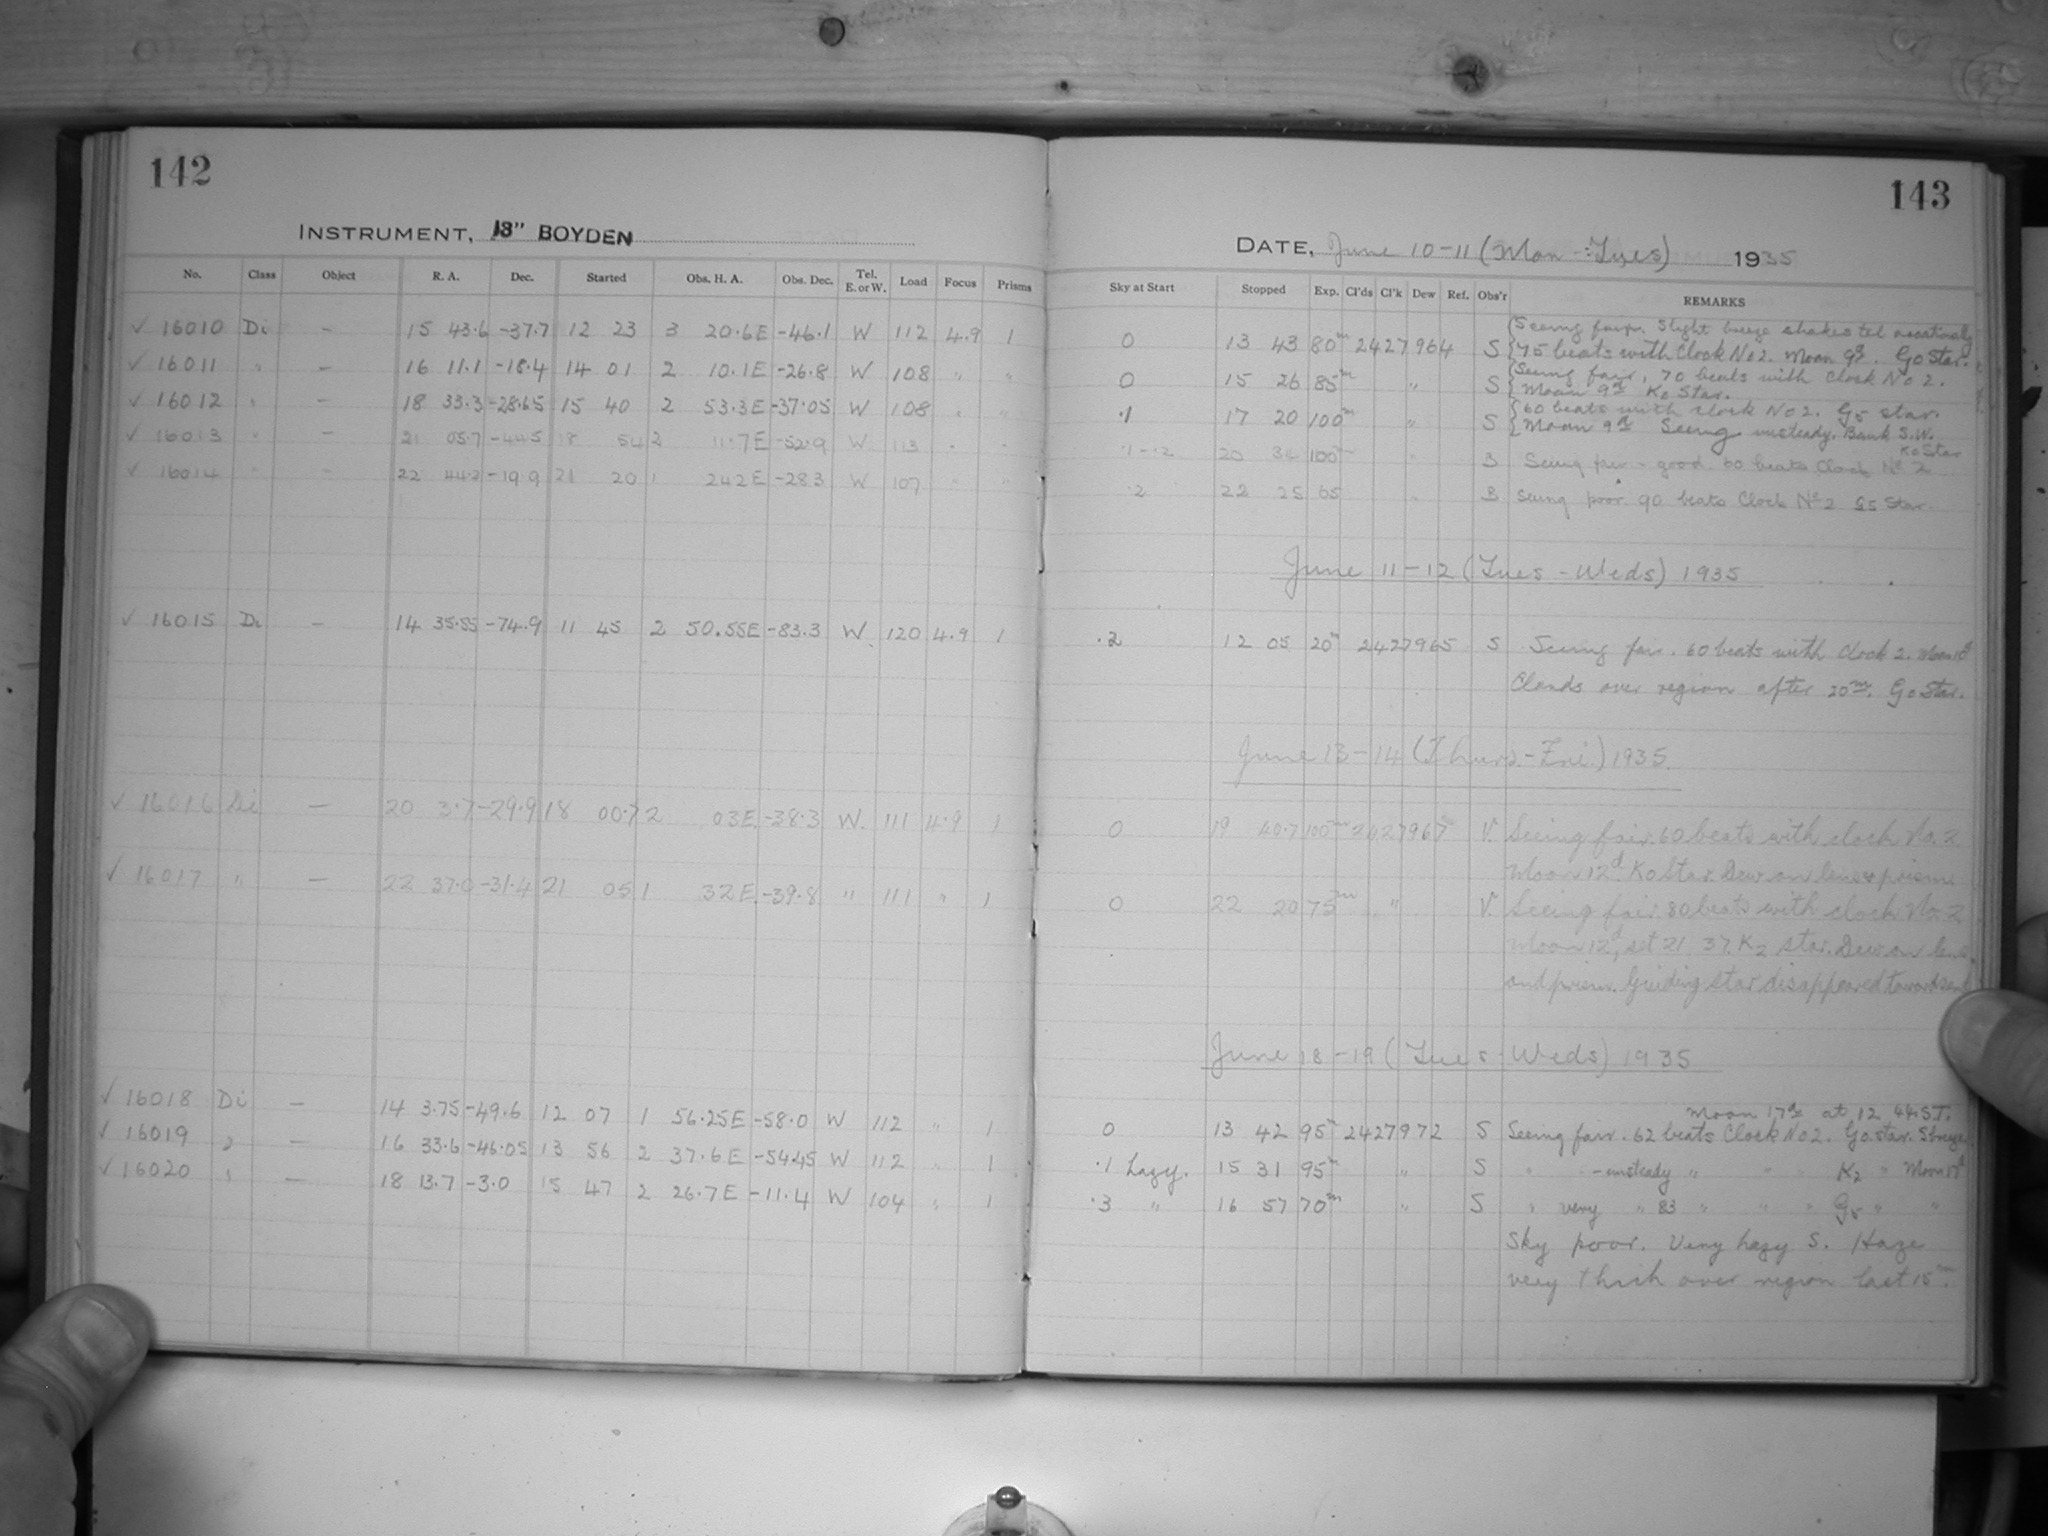 142
INSTRUMENT, 13" BOYDEN
No. Class Object R. A. Dec. Started Obs. H. A. Obs. Dec. Tel. E. or W. Load Focus Prisms
✓ 16010 Di - 15 43.6 -37.7 12 23 3 20.6E -46.1 W 112 4.9 1
✓ 16011 " - 16 11.1 -18.4 14 01 2 10.1E -26.8 W 108 " "
✓ 16012 " - 18 33.3 -28.65 15 40 2 53.3E -37.05 W 108 " "
✓ 16013 " - 21 05.7 -44.5 18 54 2 11.7E -52.9 W 113 " "
✓ 16014 " - 22 44.2 -19.9 21 20 1 24.2E -28.3 W 107 " "
✓ 16015 Di - 14 35.55 -74.9 11 45 2 50.55E -83.3 W. 120 4.9 1
✓ 16016 Di - 20 3.7 -29.9 18 00.7 2 03E -38.3 W. 111 4.9 1
✓ 16017 " - 22 37.0 -31.4 21 05 1 32E -39.8 " 111 " 1
✓ 16018 Di - 14 3.75 -49.6 12 07 1 56.25E -58.0 W 112 " 1
✓ 16019 " - 16 33.6 -46.05 13 56 2 37.6E -54.45 W 112 " 1
✓ 16020 " - 18 13.7 -3.0 15 47 2 26.7E -11.4 W 104 " 1
143
DATE, June 10-11 (Mon-Tues) 1935
Sky at Start Stopped Exp. Cl'ds Cl'k Dew Ref. Obs'r REMARKS
Seeing fair. Slight breeze shakes tel occasionally
0 13 43 80m 2427964 S 75 beats with Clock No 2. Moon 9d. G0 Star.
Seeing fair, 70 beats with Clock No 2.
0 15 26 85m " S Moon 9d K0 Star.
60 beats with clock No 2. G5 star.
.1 17 20 100m " S Moon 9d Seeing unsteady. Bank S.W.
K0 Star
.1-.2 20 34 100m " B Seeing fair - good 60 beats Clock No 2
.2 22 25 65 " B Seeing poor. 90 beats Clock No 2 G5 Star.
June 11-12 (Tues - Weds) 1935
.2 12 05 20m 2427965 S Seeing fair. 60 beats with clock 2. Moon 10d
Clouds over region after 20m. G0 Star.
June 13-14 (Thurs.-Fri.) 1935.
0 19 40.7 100m 2427967 V. Seeing fair. 60 beats with clock No. 2
Moon 12d K0 Star. Dew on lens & prism.
0 22 20 75m " V. Seeing fair. 80 beats with clock No. 2
Moon 12d, set 21 37. K2 star. Dew on lens
and prism. Guiding star disappeared toward end
June 18-19 (Tues - Weds) 1935
Moon 17d at 12 44 S.T.
0 13 42 95m 2427972 S Seeing fair. 62 beats Clock No 2. G0 star.
.1 hazy. 15 31 95m " S " - unsteady " " " K2 " Moon 17d
.3 " 16 57 70m " S " very " 83 " " " G5 " "
Sky poor. Very hazy S. Haze
very thick over region last 15m.